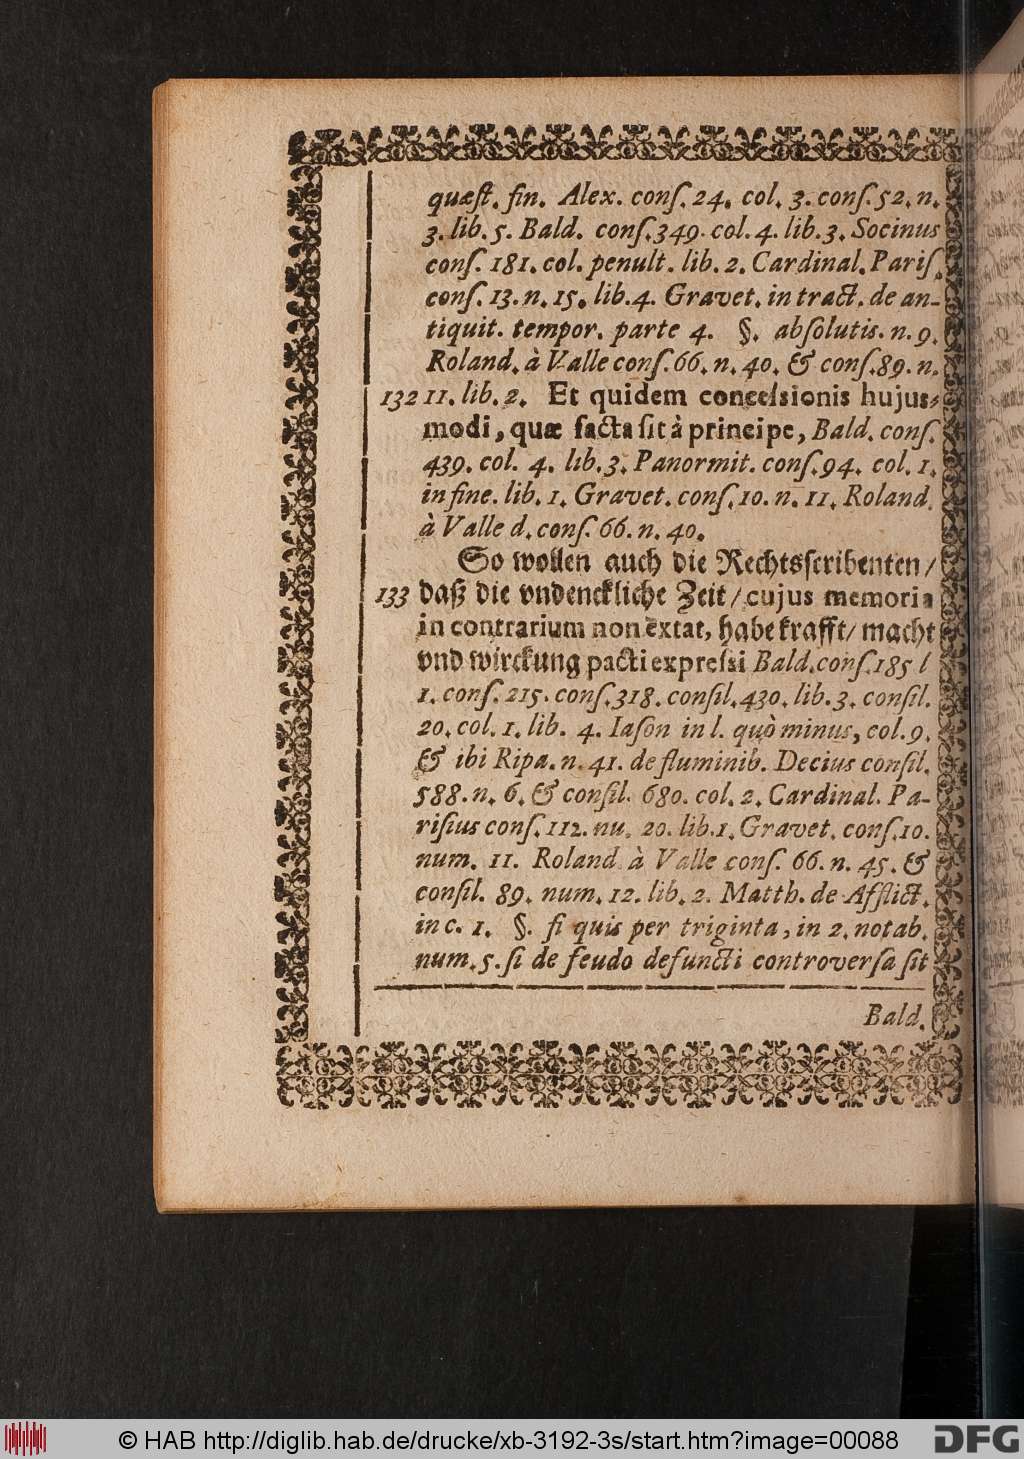 quæſt. fin. Alex. conſ. 24. col. 3. conſ. 52. n.
3. lib. 5. Bald. conſ. 349. col. 4. lib. 3. Socinus
conſ. 181. col. penult. lib. 2. Cardinal. Pariſ.
conſ. 13. n. 15. lib. 4. Gravet. in tract. de an-
tiquit. tempor. parte 4. §. abſolutis. n. 9.
Roland. à Valle conſ. 66. n. 40. & conſ. 89. n.
132 11. lib. 2. Et quidem conceſsionis hujus-
modi, quæ facta ſit à principe, Bald. conſ.
439. col. 4. lib. 3. Panormit. conſ. 94. col. 1.
in fine. lib. 1. Gravet. conſ. 10. n. 11. Roland.
à Valle d. conſ. 66. n. 40.
So wollen auch die Rechtsſcribenten/
133 daß die vndenckliche Zeit/ cujus memoria
in contrarium non extat, habe krafft/ macht
vnd wirckung pacti expreſsi Bald. conſ. 185 l
1. conſ. 215. conſ. 318. conſil. 430. lib. 3. conſil.
20. col. 1. lib. 4. Iaſon in l. quò minus, col. 9.
& ibi Ripa. n. 41. de fluminib. Decius conſil.
588. n. 6. & conſil. 680. col. 2. Cardinal. Pa-
riſius conſ. 112. nu. 20. lib. 1. Gravet. conſ. 10.
num. 11. Roland à Valle conſ. 66. n. 45. &
conſil. 89. num. 12. lib. 2. Matth. de Afflict.
in c. 1. §. ſi quis per triginta, in 2. notab.
num. 5. ſi de feudo defuncti controverſa ſit
Bald.
© HAB http://diglib.hab.de/drucke/xb-3192-3s/start.htm?image=00088
DFG